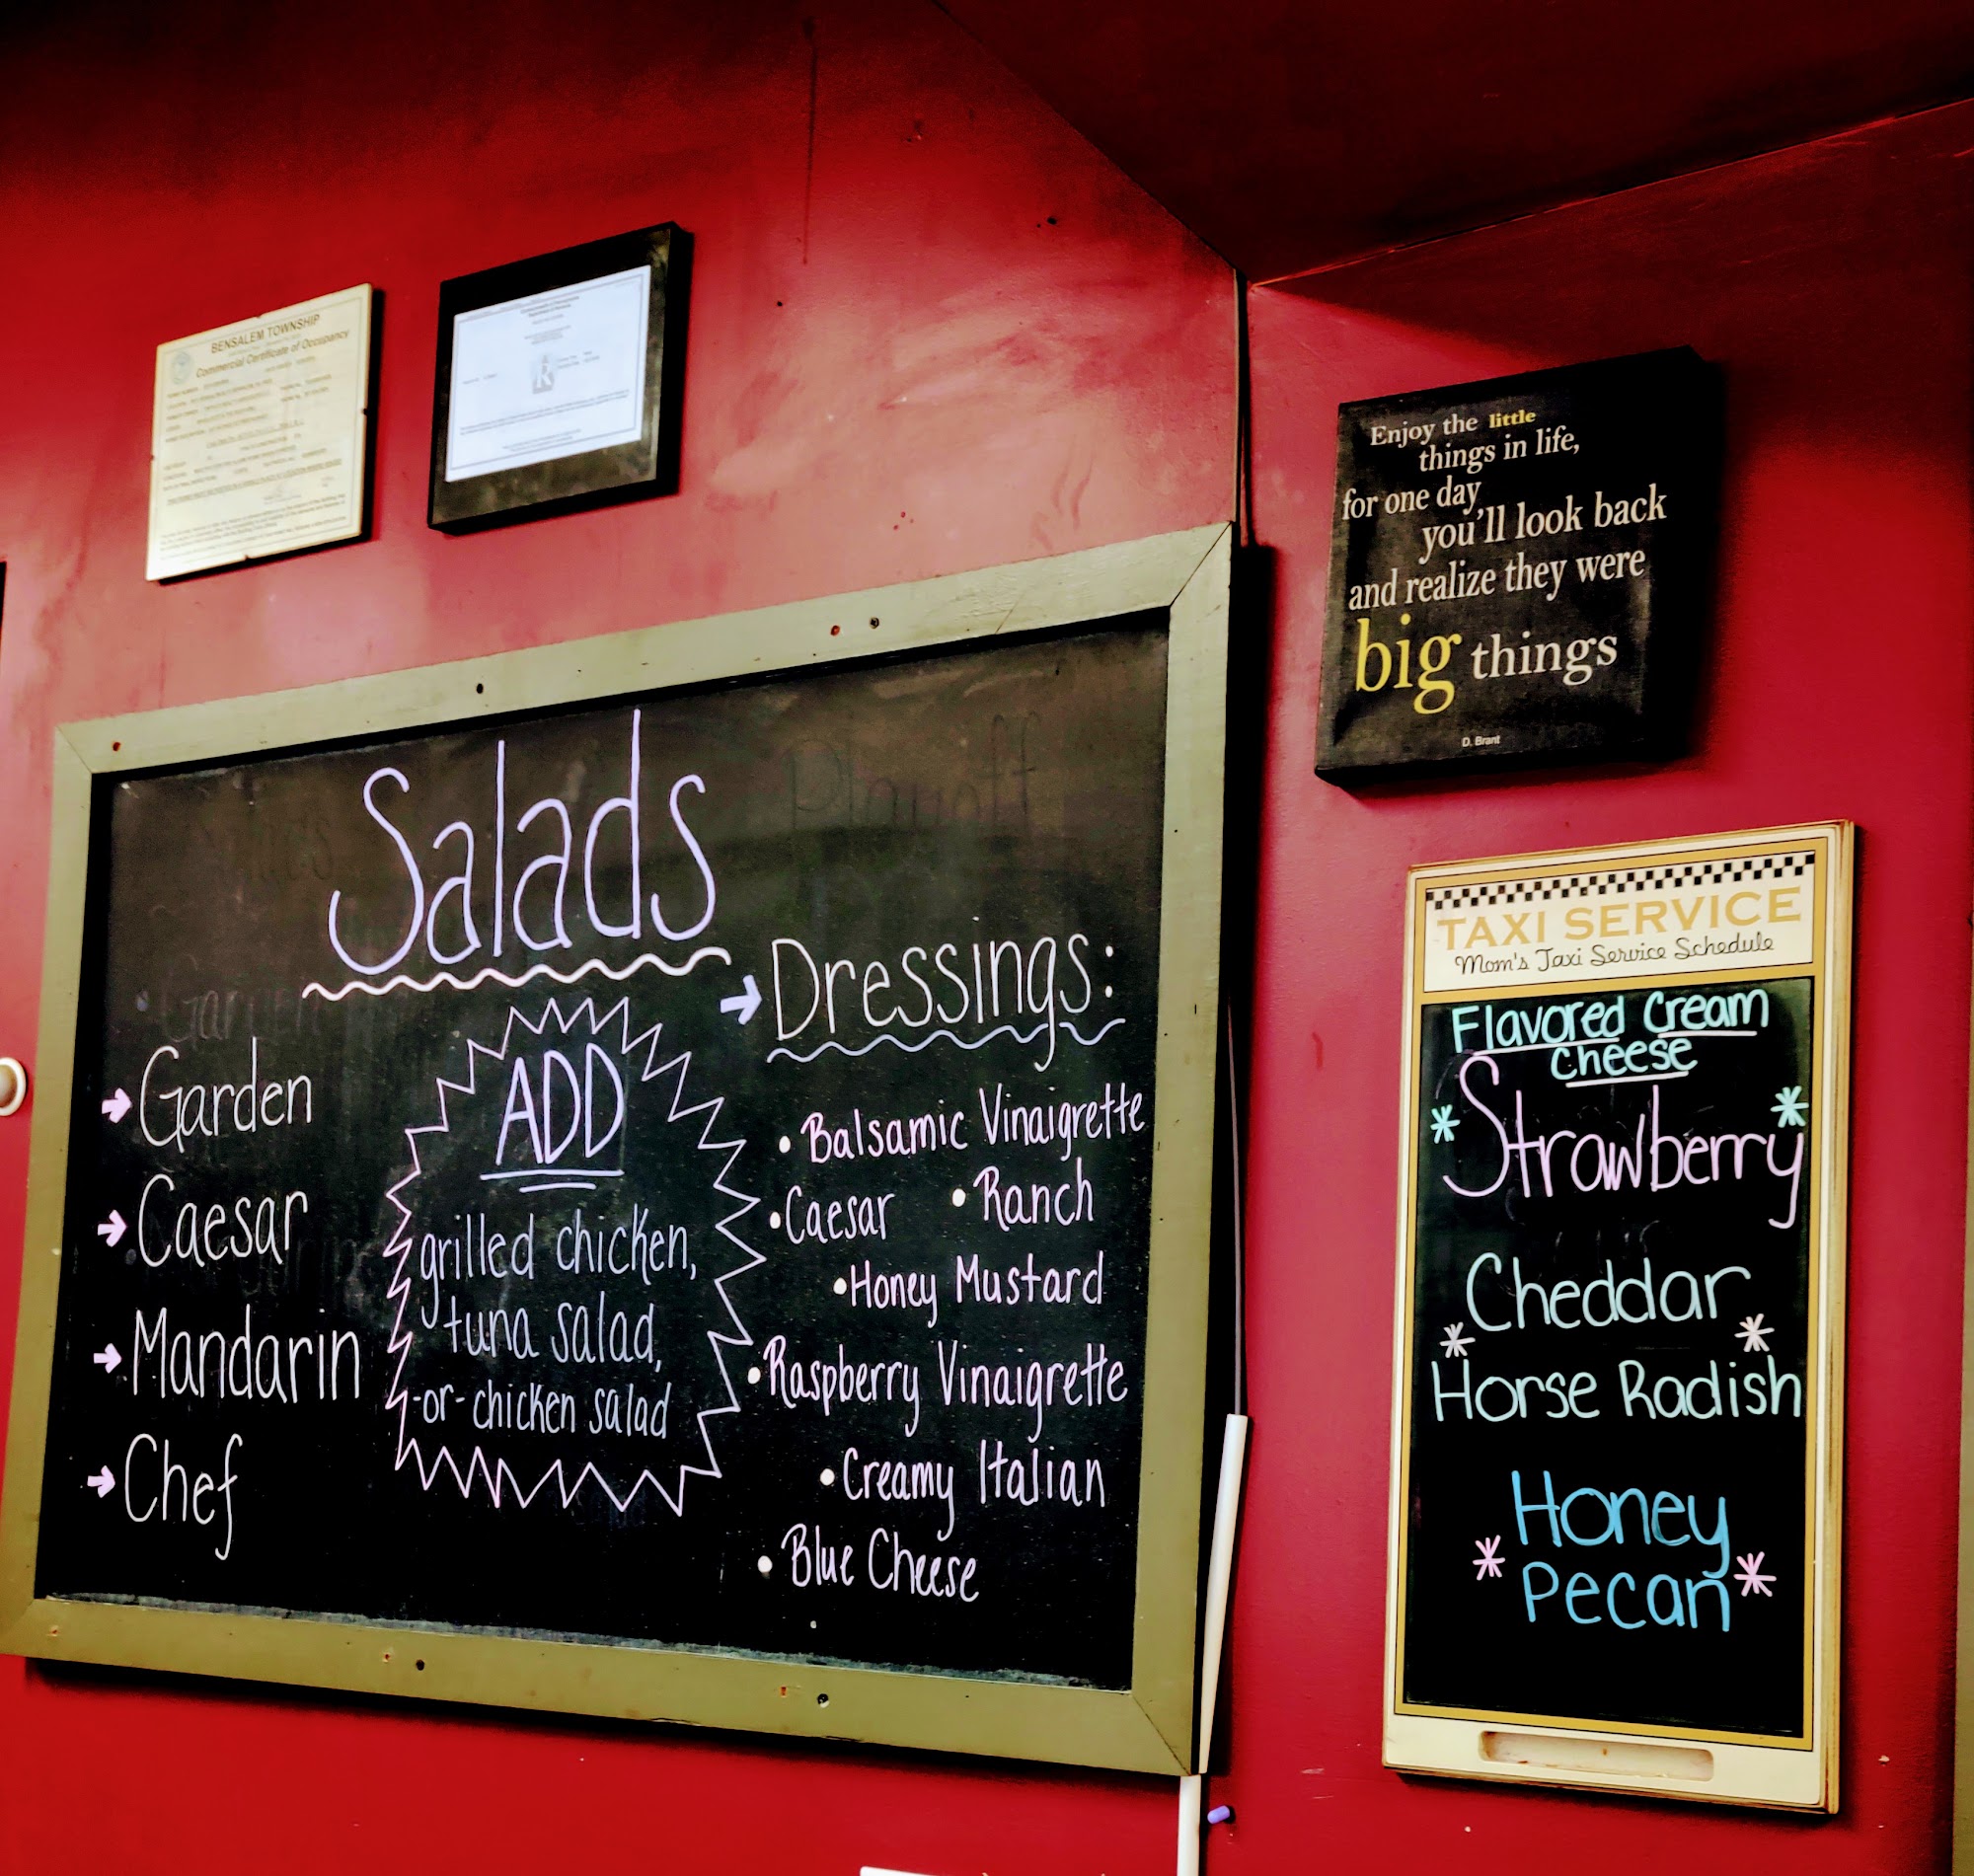 BENSALEM TOWNSHIP
Commercial Certificate of Occupancy
Enjoy the little
things in life,
for one day
you'll look back
and realize they were
big things
D. Brant
Salads
Garden
Caesar
Mandarin
Chef
ADD
grilled chicken,
tuna salad,
-or- chicken salad
Dressings:
• Balsamic Vinaigrette
• Caesar • Ranch
• Honey Mustard
• Raspberry Vinaigrette
• Creamy Italian
• Blue Cheese
TAXI SERVICE
Mom's Taxi Service Schedule
Flavored Cream
Cheese
Strawberry
Cheddar
Horse Radish
Honey
Pecan